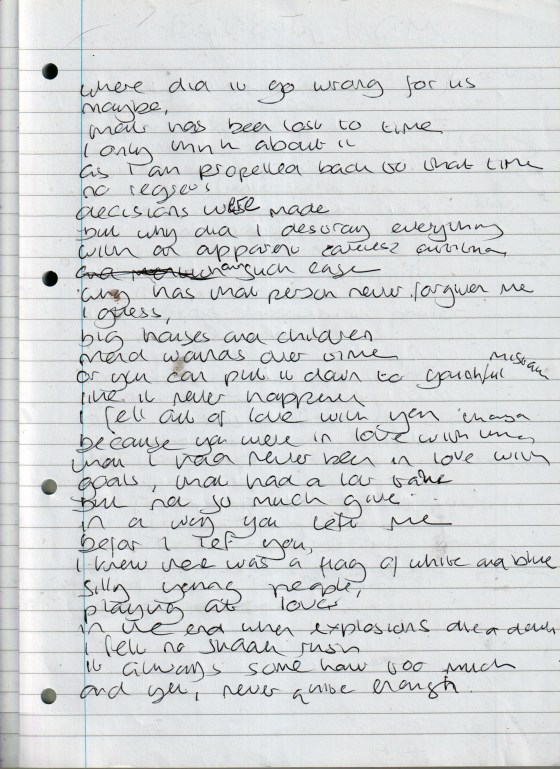 where did it go wrong for us
maybe,
that has been lost to time
I only think about it
as I am propelled back to that time
no regrets
decisions were made
but why did I destroy everything
with an apparent careless
and such ease
why has that person never forgiven me
I guess,
big houses and children
mend wounds over time
or you can put it down to youthful mistake
like it never happen
I fell out of love with you
because you were in love with
that I had never been in love with
goals, that had a lot take
but not so much give
in a way you left me
before I left you,
I knew there was a flag of white and blue
silly young people,
playing at lovers
in the end when explosions died down
I felt no
it always some how too much
and yet, never quite enough.